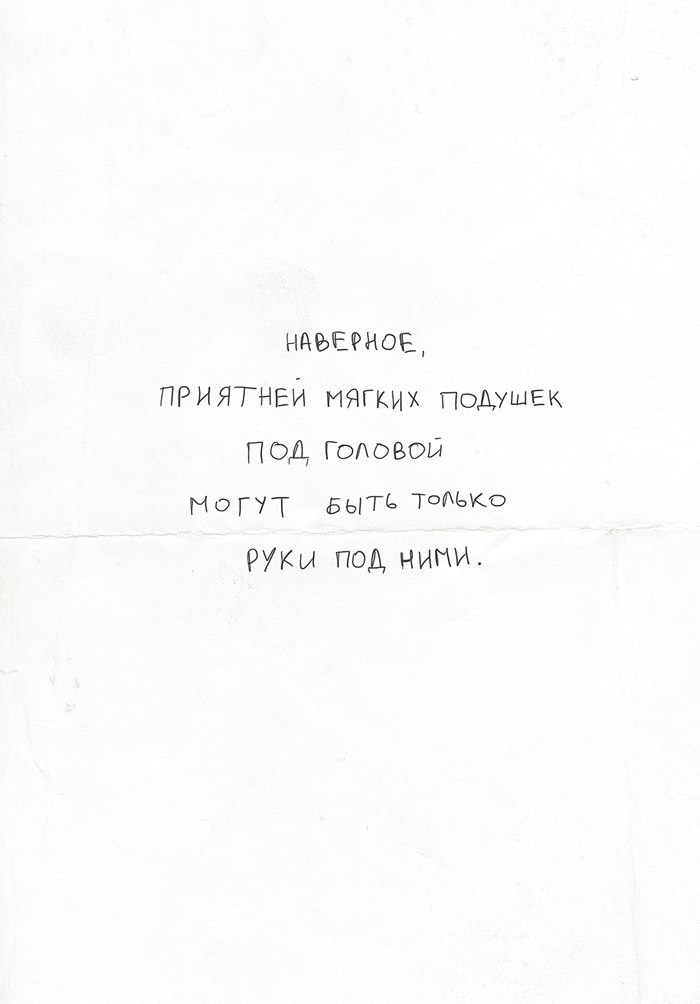 НАВЕРНОЕ,
ПРИЯТНЕЙ МЯГКИХ ПОДУШЕК
ПОД ГОЛОВОЙ
МОГУТ БЫТЬ ТОЛЬКО
РУКИ ПОД НИМИ.